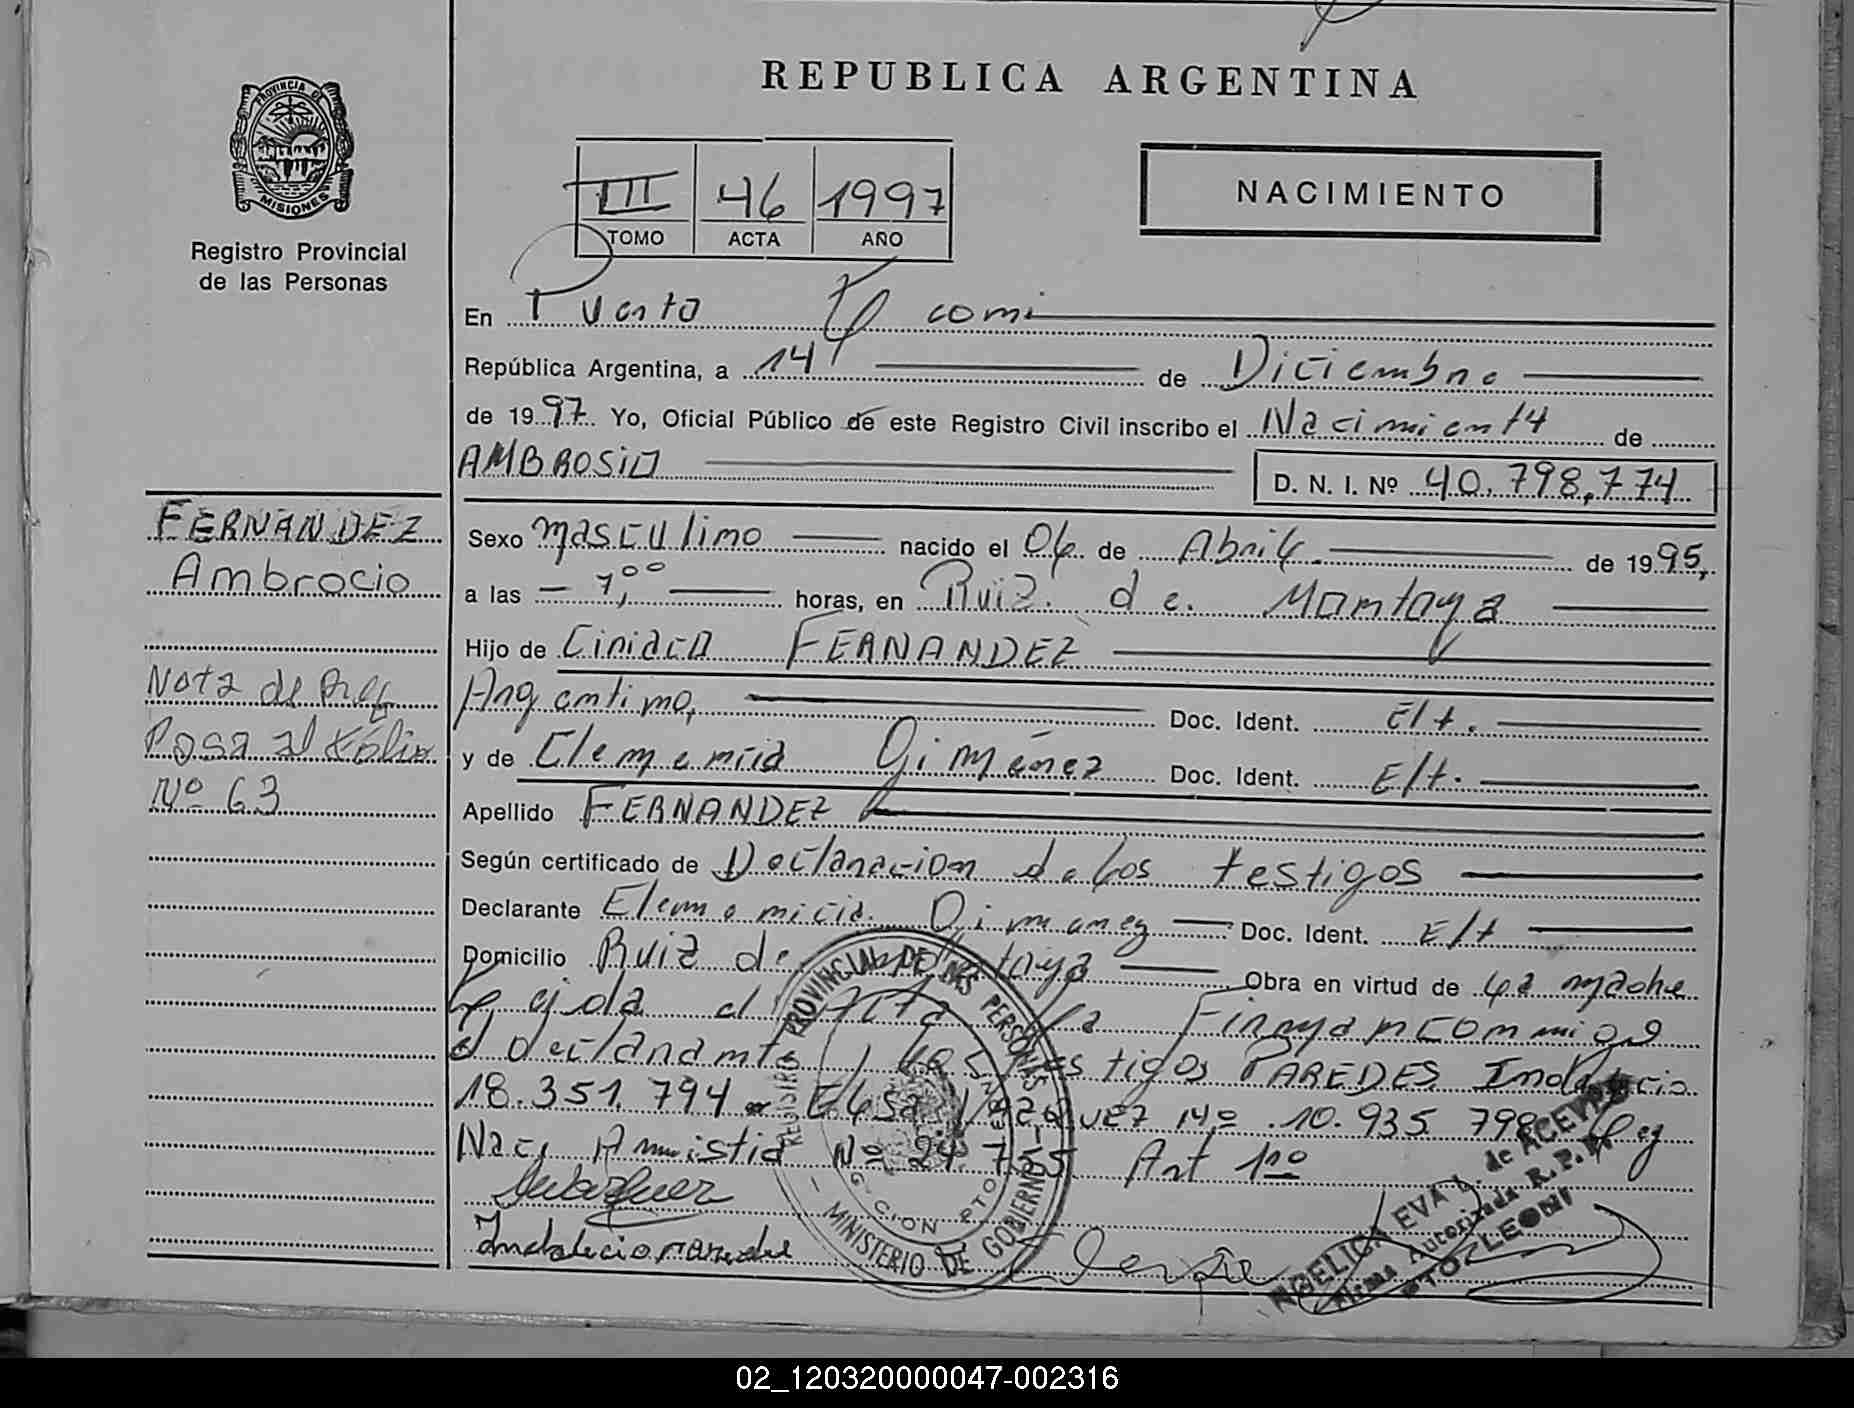 REPUBLICA ARGENTINA
PROVINCIA DE
MISIONES
Registro Provincial
de las Personas
III 46 1997
TOMO ACTA AÑO
NACIMIENTO
En Puerto Leoni
República Argentina, a 14 de Diciembre
de 1997 Yo, Oficial Público de este Registro Civil inscribo el Nacimiento de
AMBROSIO D. N. I. Nº 40.798.774
FERNANDEZ
Ambrocio
Nota de Ref
Pasa al folio
Nº 63
Sexo masculino nacido el 06 de Abril de 1995,
a las 7,00 horas, en Ruiz de Montoya
Hijo de Ciriaco FERNANDEZ
Argentino, Doc. Ident. E/t.
y de Clemencia Giménez Doc. Ident. E/t.
Apellido FERNANDEZ
Según certificado de Declaracion de los testigos
Declarante Giménez Doc. Ident. E/t
Domicilio Ruiz de Montoya Obra en virtud de la madre
Leida el Acta la Firman conmigo
el declarante los testigos PAREDES Indalecio
18.351.794 Elsa VAZQUEZ Nº 10.935 798 Ley
Nac. Amnistia Nº 24.755 Art 1º
Indalecio paredes
REGISTRO PROVINCIAL DE LAS PERSONAS
MINISTERIO DE GOBIERNO
ANGELICA EVA L. de ACEVEDO
Firma Autorizada R.P.P.
PTO. LEONI
02_120320000047-002316